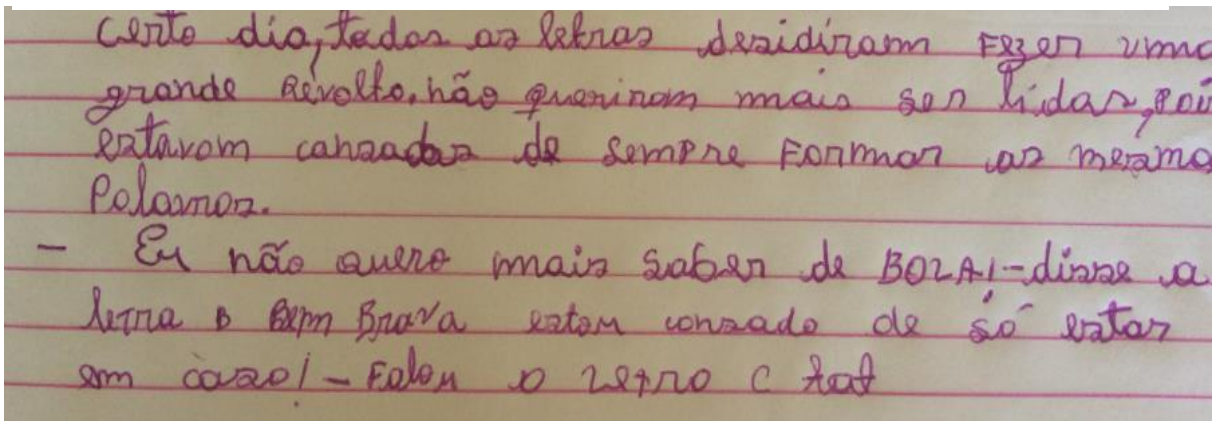 Certo dia, todas as letras desidiram Fazer uma
grande Revolta, não queriram mais ser lidas, poi
estavam cansadas de sempre Formar as mesma
Palavras.
- Eu não quero mais saber de BOLA! - disse a
letra B Bem Brava estou cansado de só estar
em casa! - Falou a letra C